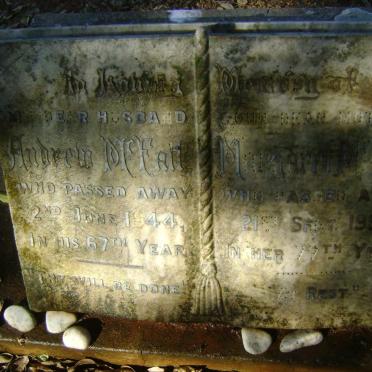 In Loving Memory of
MY DEAR HUSBAND
Andrew
WHO PASSED AWAY
2ND JUNE 1944.
IN HIS 67TH YEAR
WILL BE DONE
OUR DEAR
Margaret
WHO PASSED
21ST SEPT. 19
IN HER 77TH
REST"